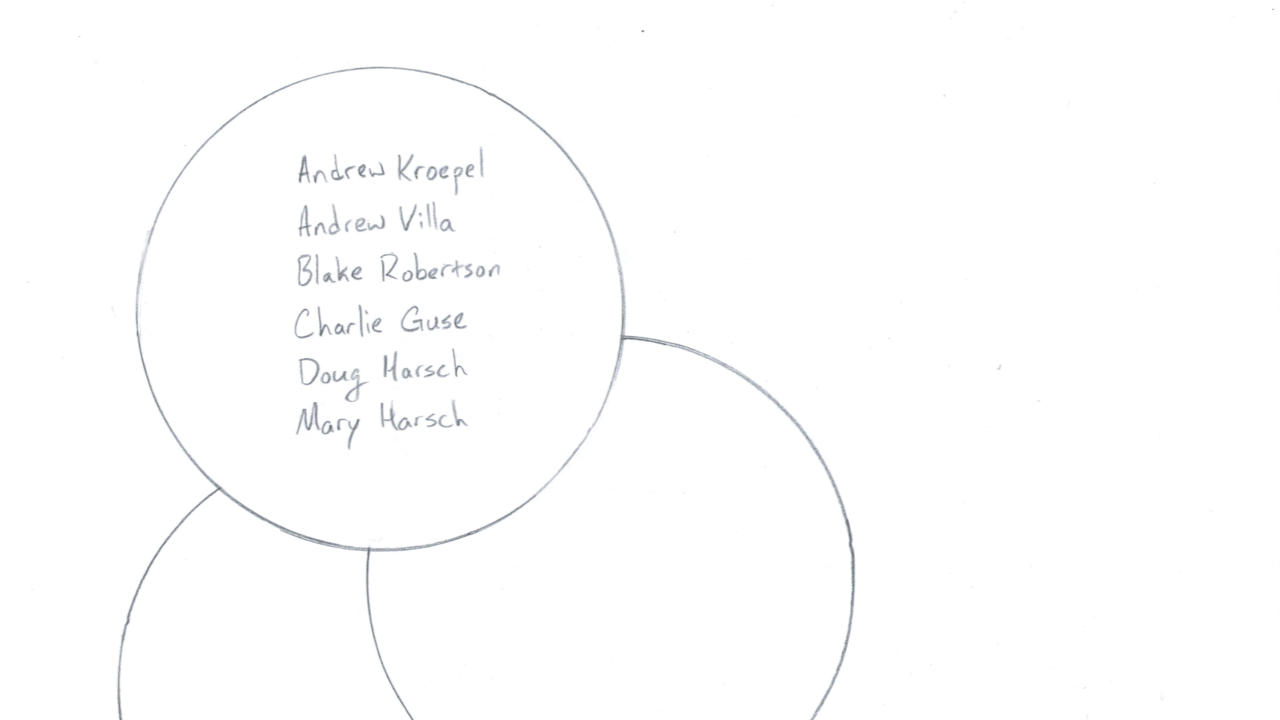 Andrew Kroepel
Andrew Villa
Blake Robertson
Charlie Guse
Doug Harsch
Mary Harsch